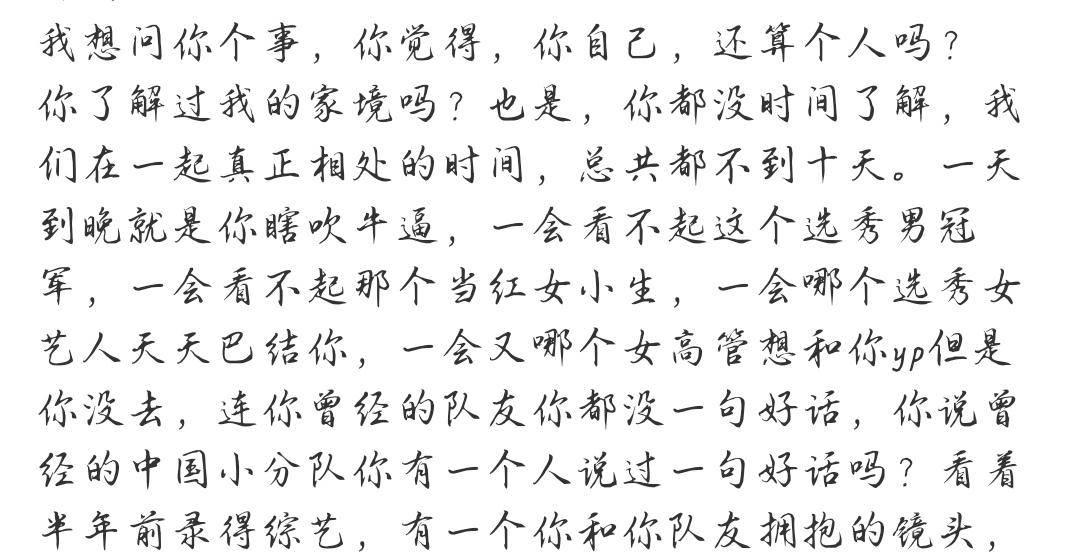 我想问你个事，你觉得，你自己，还算个人吗？
你了解过我的家境吗？也是，你都没时间了解，我
们在一起真正相处的时间，总共都不到十天。一天
到晚就是你瞎吹牛逼，一会看不起这个选秀男冠
军，一会看不起那个当红女小生，一会哪个选秀女
艺人天天巴结你，一会又哪个女高管想和你yp但是
你没去，连你曾经的队友你都没一句好话，你说曾
经的中国小分队你有一个人说过一句好话吗？看着
半年前录得综艺，有一个你和你队友拥抱的镜头，